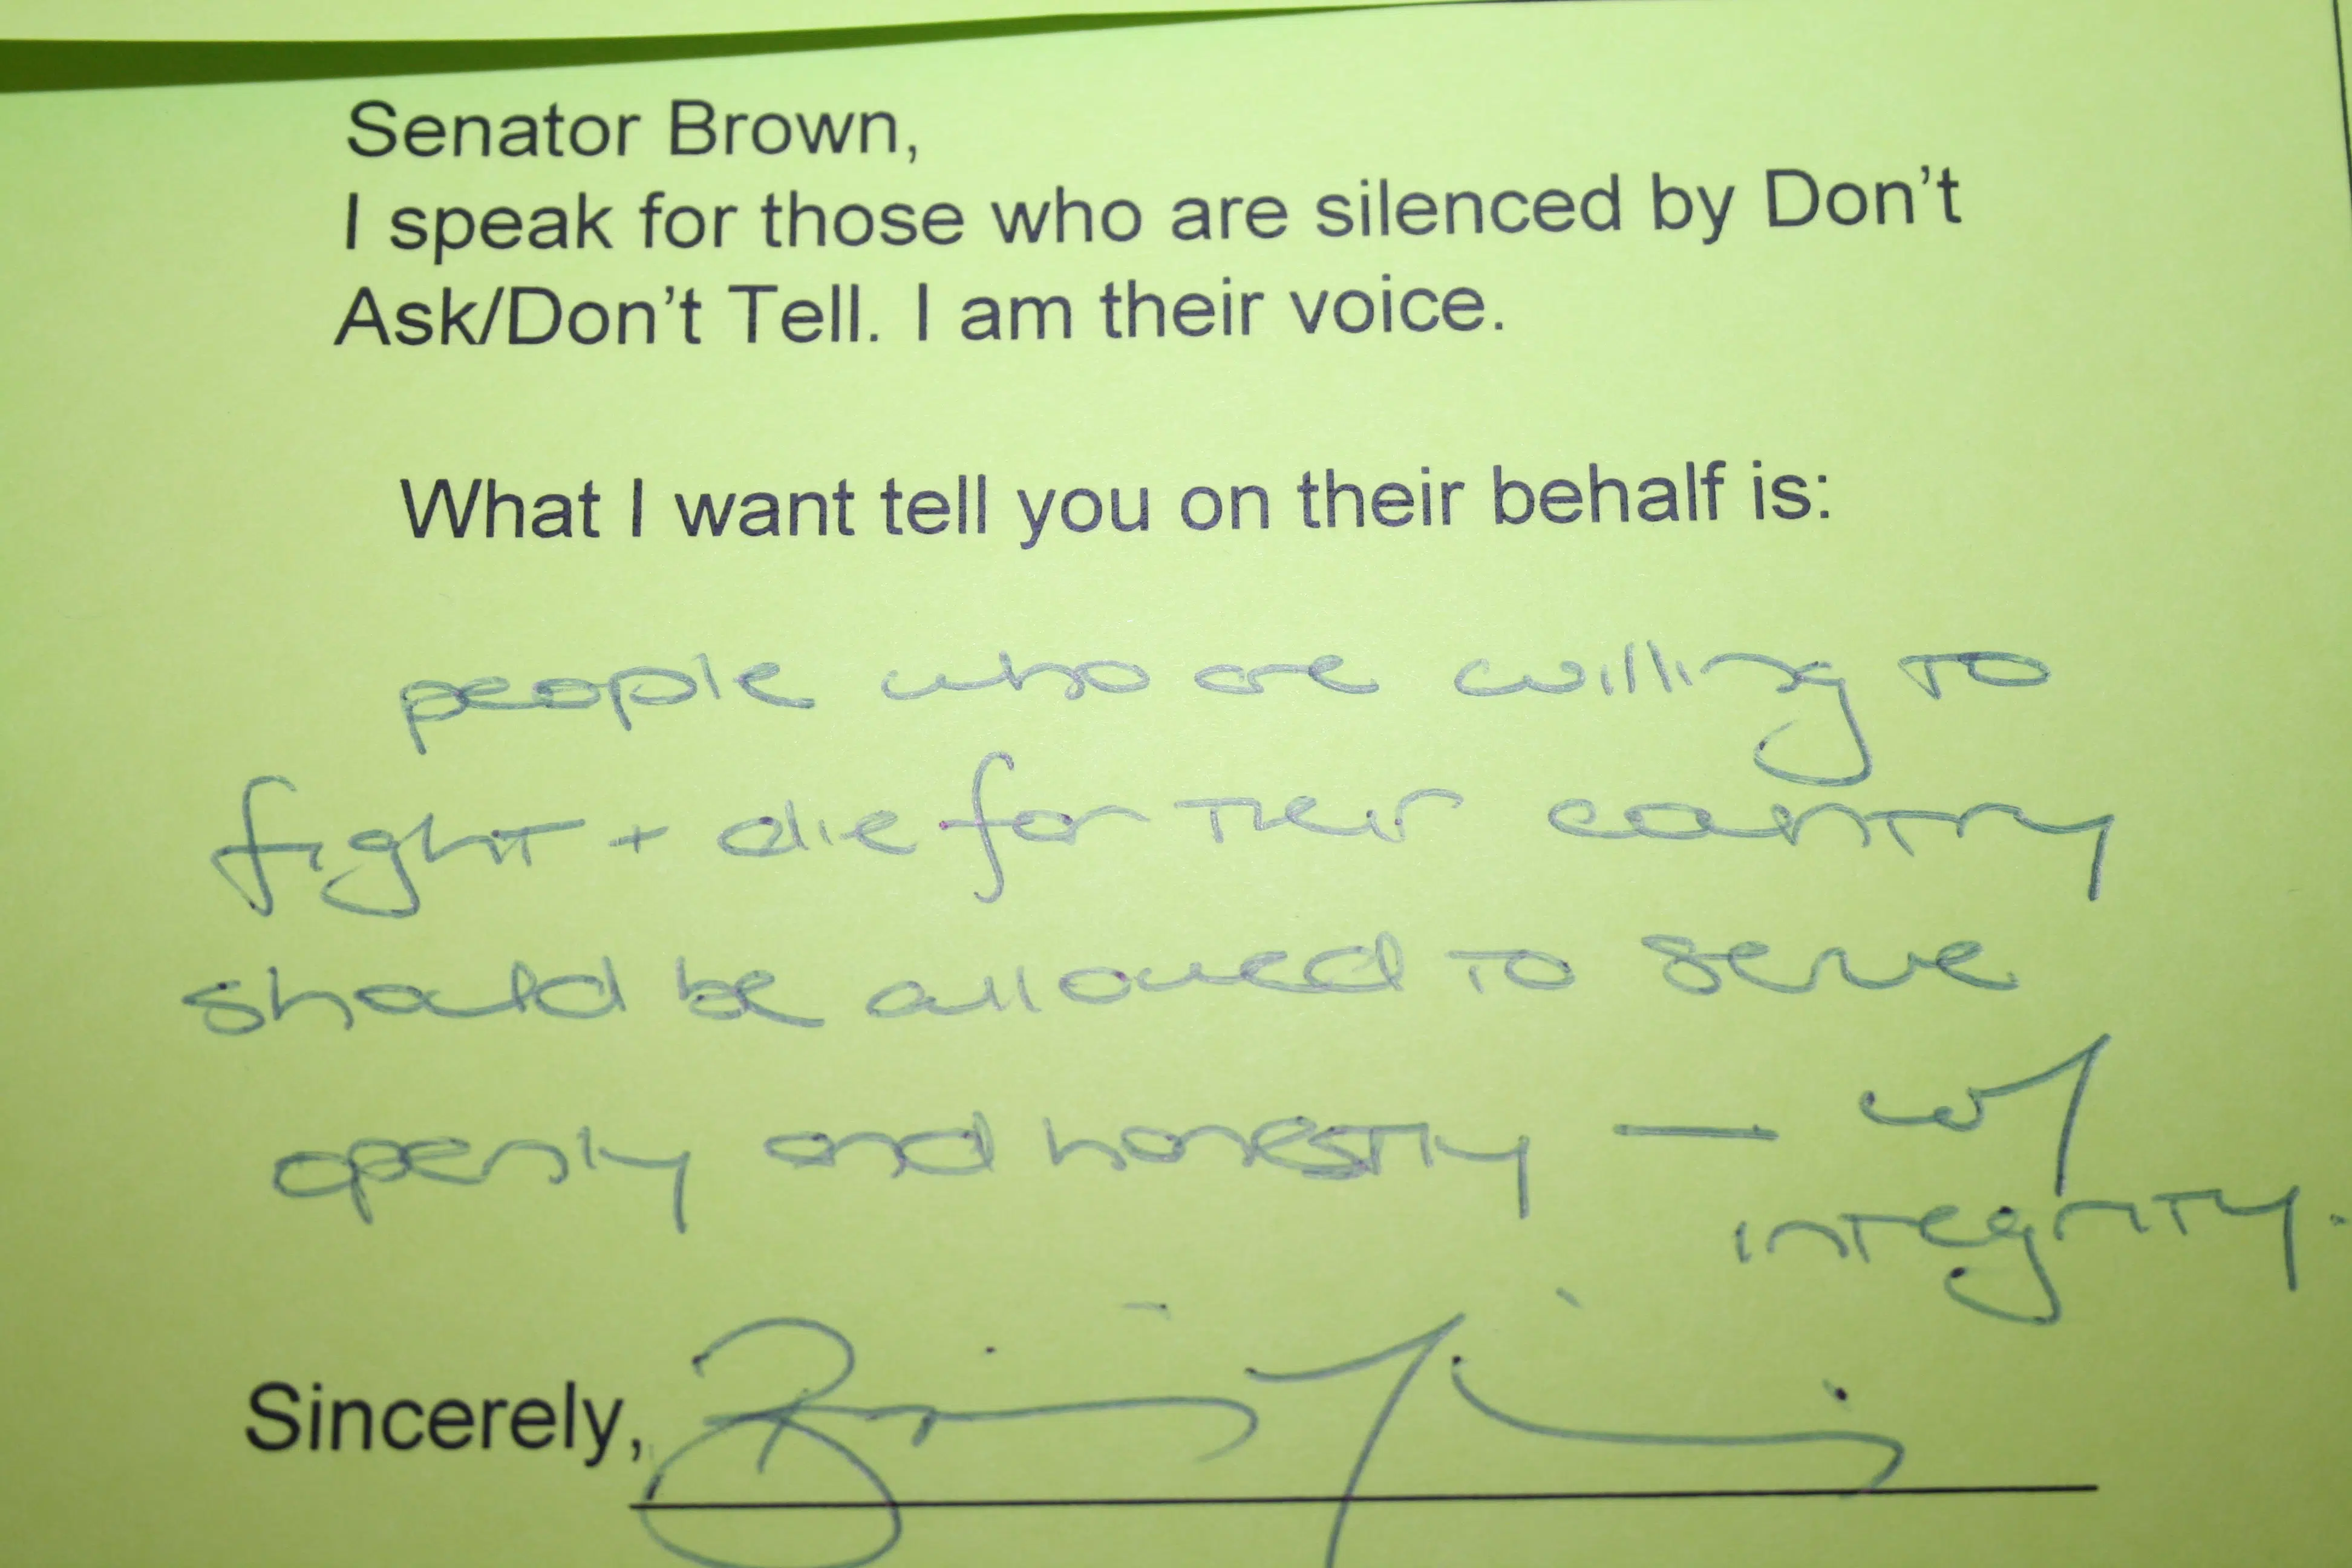 Senator Brown,
I speak for those who are silenced by Don't
Ask/Don't Tell. I am their voice.
What I want tell you on their behalf is:
people who are willing to
fight + die for their country
should be allowed to serve
openly and honestly — w/
integrity.
Sincerely,